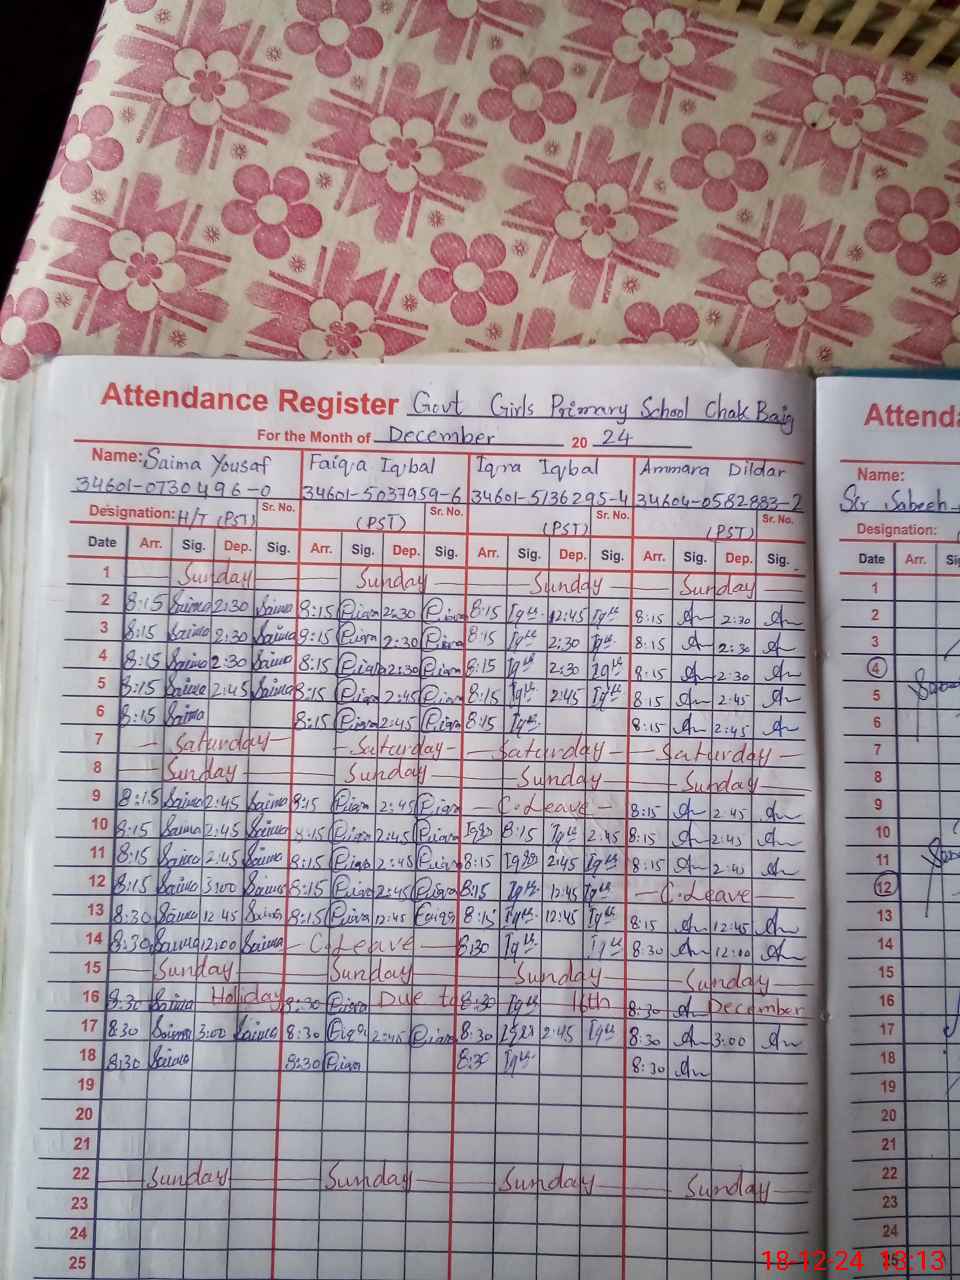 Attendance Register Govt Girls Primary School Chak Baig
For the Month of December 2024
Name: Saima Yousaf Faiqa Iqbal Iqra Iqbal Ammara Dildar
34601-0730496-0 34601-5037959-6 34601-5136295-4 34604-0582883-2
Designation: H/T (PST) Sr. No. (PST) Sr. No. (PST) Sr. No. (PST) Sr. No.
Date Arr. Sig. Dep. Sig. Arr. Sig. Dep. Sig. Arr. Sig. Dep. Sig. Arr. Sig. Dep. Sig.
1 Sunday Sunday Sunday Sunday
2 8:15 Saima 2:30 Saima 8:15 2:30 8:15 12:45 8:15 2:30
3 8:15 Saima 2:30 Saima 8:15 2:30 8:15 2:30 8:15 2:30
4 8:15 Saima 2:30 Saima 8:15 2:30 8:15 2:30 8:15 2:30
5 8:15 Saima 2:45 Saima 8:15 2:45 8:15 2:45 8:15 2:45
6 8:15 Saima 8:15 2:45 8:15 8:15 2:45
7 Saturday Saturday Saturday Saturday
8 Sunday Sunday Sunday Sunday
9 8:15 Saima 2:45 Saima 8:15 2:45 C.Leave 8:15 2:45
10 8:15 Saima 2:45 Saima 8:15 2:45 8:15 2:45 8:15 2:45
11 8:15 Saima 2:45 Saima 8:15 2:45 8:15 2:45 8:15 2:40
12 8:15 Saima 3:00 Saima 8:15 2:45 8:15 12:45 C.Leave
13 8:30 Saima 12:45 Saima 8:15 12:45 8:15 12:45 8:15 12:45
14 8:30 Saima 12:00 Saima C.Leave 8:30 8:30 12:00
15 Sunday Sunday Sunday Sunday
16 8:30 Saima Holiday 8:30 Due to 8:30 16th 8:30 December
17 8:30 Saima 3:00 Saima 8:30 2:45 8:30 2:45 8:30 3:00
18 8:30 Saima 8:30 8:30 8:30
19
20
21
22 Sunday Sunday Sunday Sunday
23
24
25
Name:
Designation:
Date Arr.
1
2
3
4
5
6
7
8
9
10
11
12
13
14
15
16
17
18
19
20
21
22
23
24
18-12-24 13:13